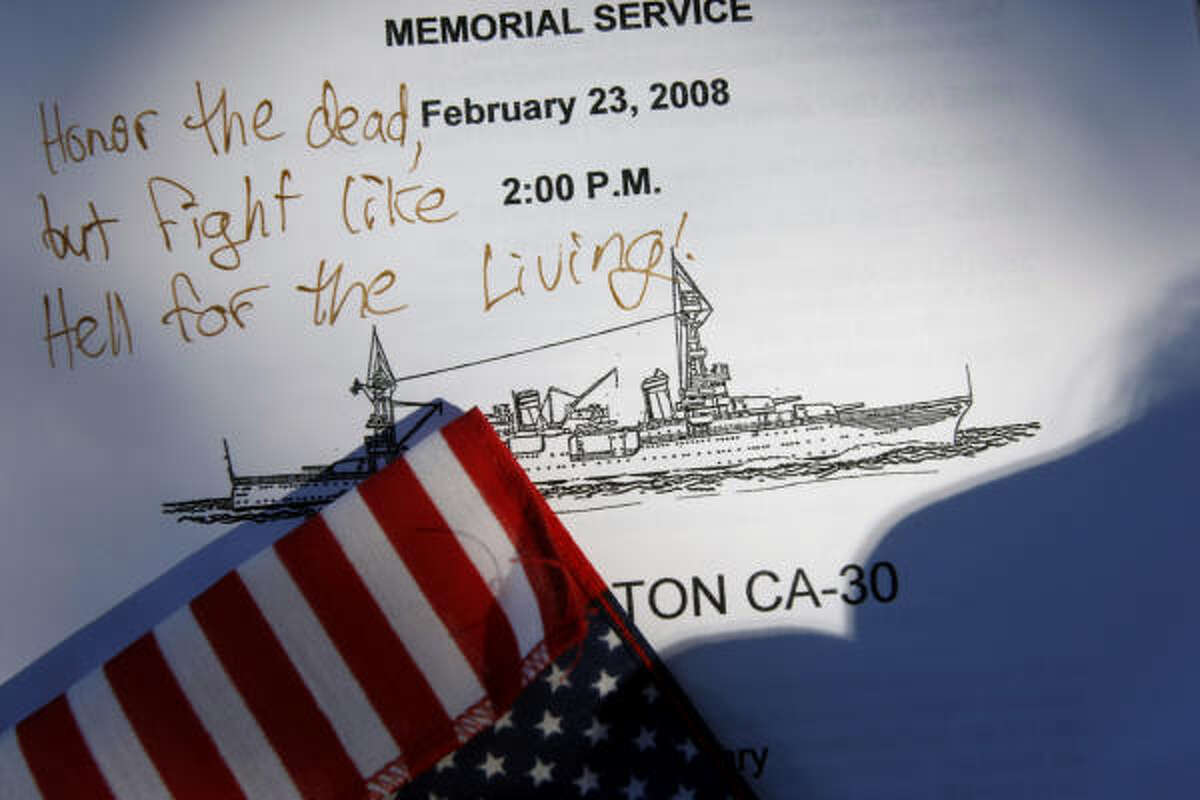 MEMORIAL SERVICE
February 23, 2008
2:00 P.M.
Honor the dead,
but fight like
Hell for the Living!
TON CA-30
ry